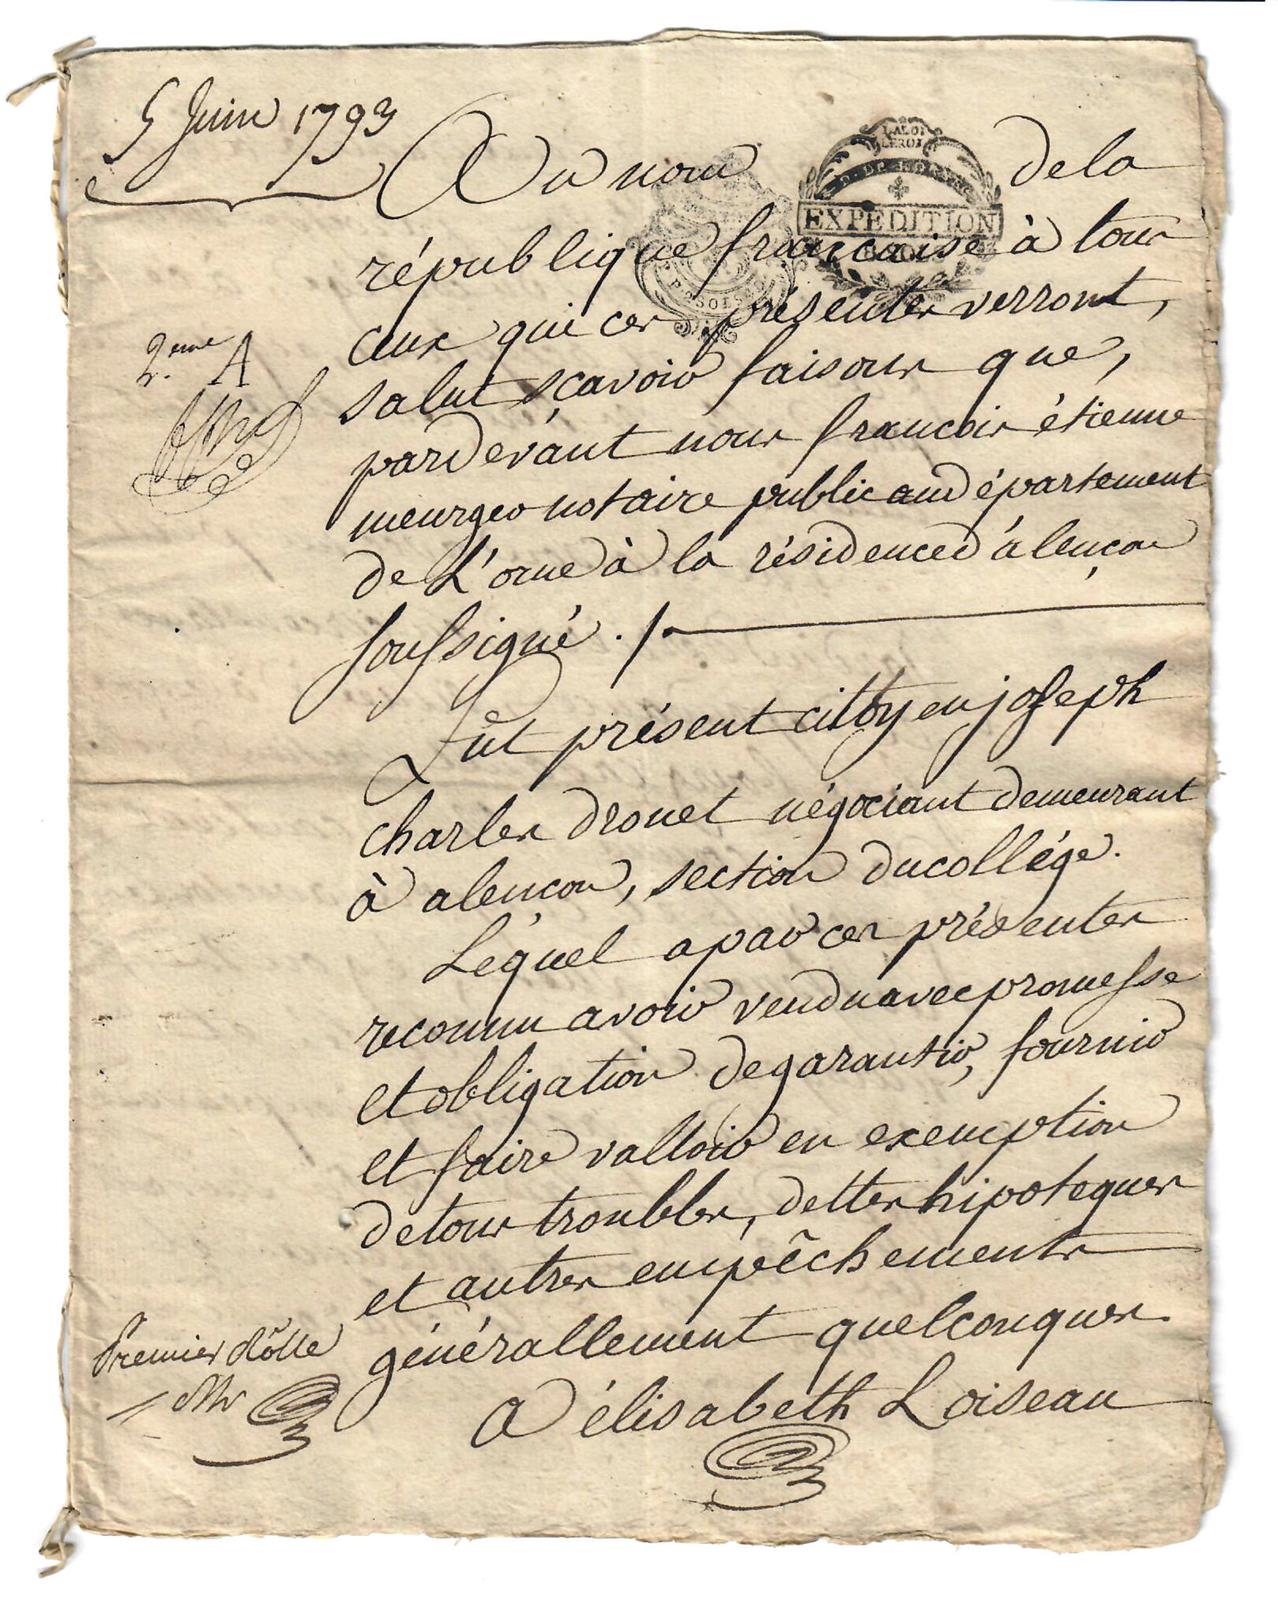 5 Juin 1793
Au nom de la
LA LOI
LE ROI
EXPEDITION
république française à tous
ceux qui ces présentes verront,
2.eme A
salut sçavoir faisons que,
pardevant nous francois étienne
meurger notaire public au département
de L'orne à la résidence d'alençon
soussigné ./.
Fut présent citoyen joseph
charles drouet négociant demeurant
à alencon, section du collége.
Léquel a par ces présentes
reconnu avoir vendu avec promesse
et obligation de garantir, fournir
et faire valloir en exemption
de tous troubles, dettes hipoteques
et autres empêchements
générallement quelconques.
Premier Rôlle
A élisabeth Loiseau